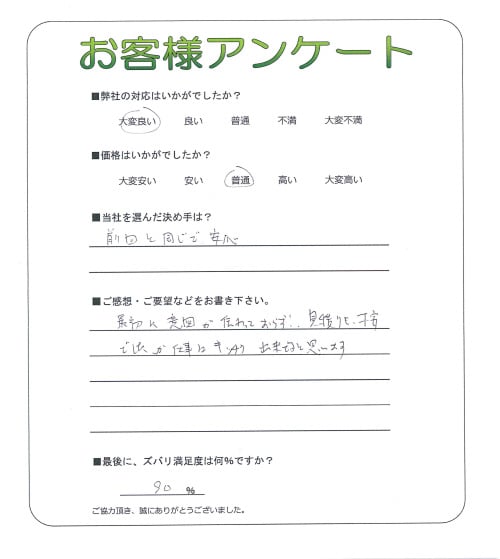 お客様アンケート
■弊社の対応はいかがでしたか？
大変良い 良い 普通 不満 大変不満
■価格はいかがでしたか？
大変安い 安い 普通 高い 大変高い
■当社を選んだ決め手は？
前回と同じで安心
■ご感想・ご要望などをお書き下さい。
最初に意図が伝わっておらず、見積りも
が仕事はキッチリ出来たと思います
■最後に、ズバリ満足度は何％ですか？
90 %
ご協力頂き、誠にありがとうございました。